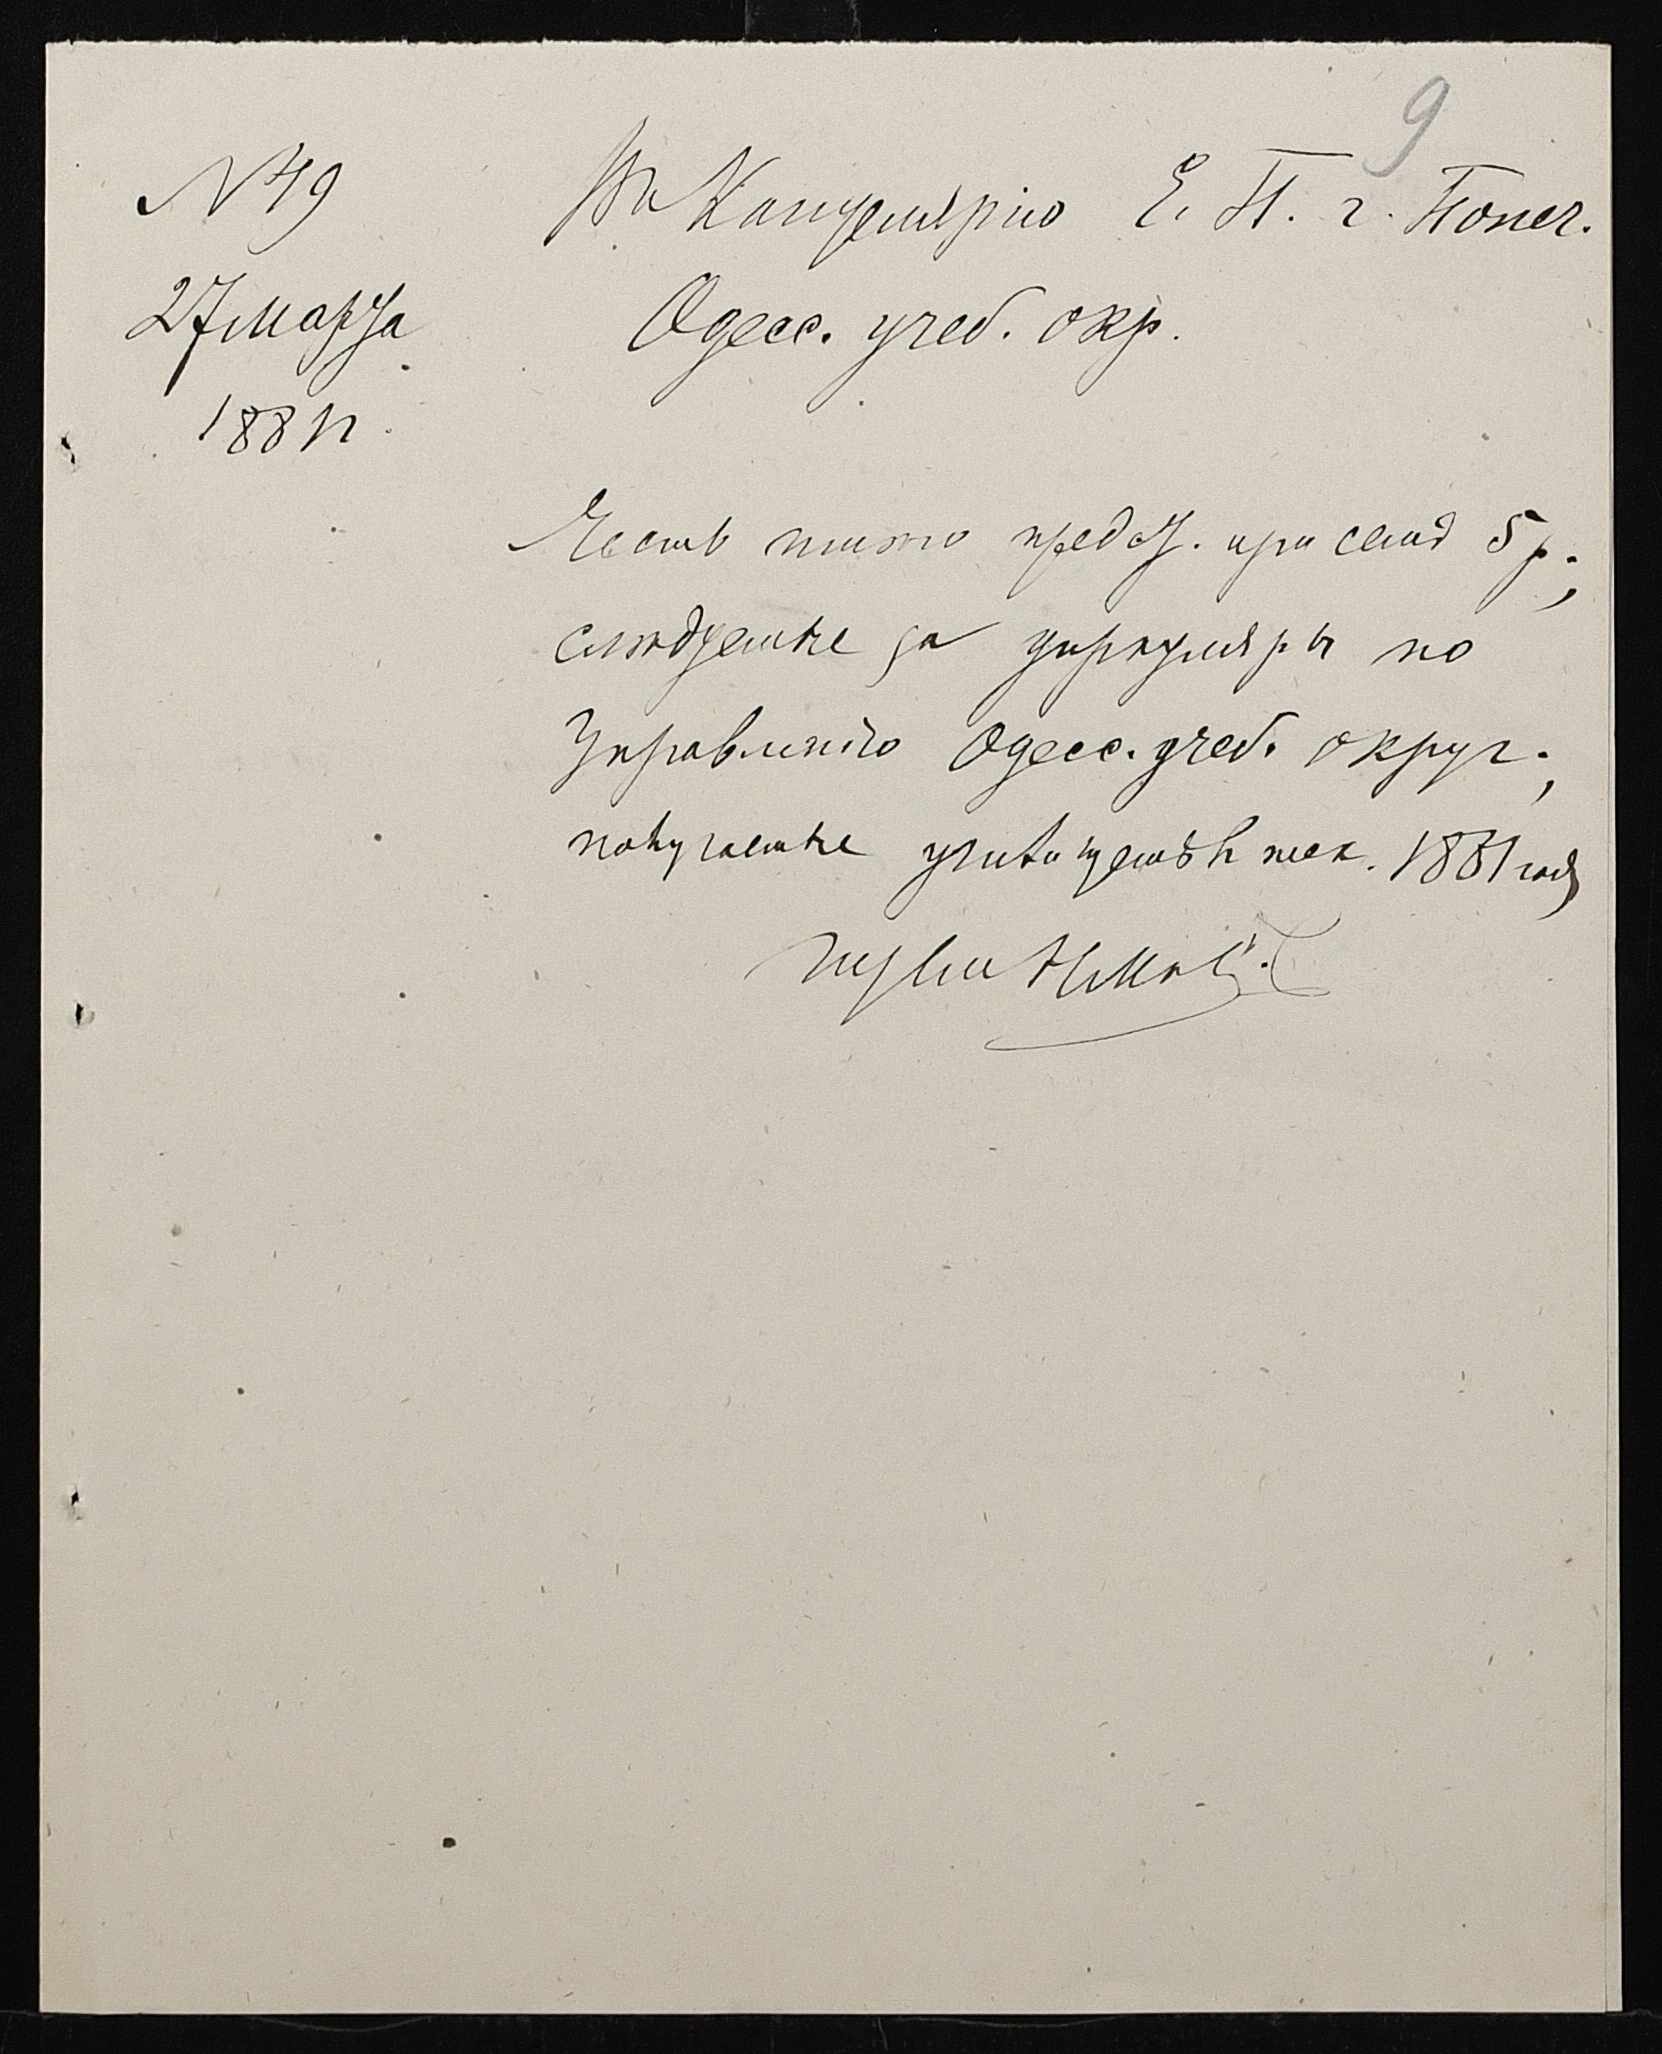 9
№ 49
27 марта
1881 г.
Въ Канцелярію Е. П. г. Попеч.
Одесс. учеб. окр.
Честь имѣю предст. при семъ 5 р.,
слѣдуемые за циркуляры по
Управленію Одесс. учеб. округ.,
получаемые училищемъ въ тек. 1881 году